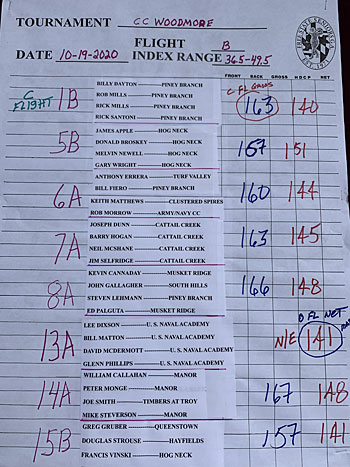 TOURNAMENT CC WOODMORE
FLIGHT B
DATE 10-19-2020 INDEX RANGE 36.5-49.5
FRONT BACK GROSS HDCP NET
C FL GROSS
C FLIGHT 1B
BILLY DAYTON PINEY BRANCH
ROB MILLS PINEY BRANCH 163 140
RICK MILLS PINEY BRANCH
RICK SANTONI PINEY BRANCH
5B
JAMES APPLE HOG NECK
DONALD BROSKEY HOG NECK 157 151
MELVIN NEWELL HOG NECK
GARY WRIGHT HOG NECK
6A
ANTHONY ERRERA TURF VALLEY
BILL FIERO PINEY BRANCH 160 144
KEITH MATTHEWS CLUSTERED SPIRES
ROB MORROW ARMY/NAVY CC
7A
JOSEPH DUNN CATTAIL CREEK
BARRY HOGAN CATTAIL CREEK 163 145
NEIL MCSHANE CATTAIL CREEK
JIM SELFRIDGE CATTAIL CREEK
8A
KEVIN CANNADAY MUSKET RIDGE
JOHN GALLAGHER SOUTH HILLS 166 148
STEVEN LEHMANN PINEY BRANCH
ED PALGUTA MUSKET RIDGE
D FL NET
13A
LEE DIXSON U. S. NAVAL ACADEMY
BILL MATTON U. S. NAVAL ACADEMY N/E 141
DAVID MCDERMOTT U. S. NAVAL ACADEMY
GLENN PHILLIPS U. S. NAVAL ACADEMY
14A
WILLIAM CALLAHAN MANOR
PETER MONGE MANOR 167 148
JOE SMITH TIMBERS AT TROY
MIKE STEVERSON MANOR
15B
GREG GRUBER QUEENSTOWN
DOUGLAS STROUSE HAYFIELDS 157 141
FRANCIS VINSKI HOG NECK